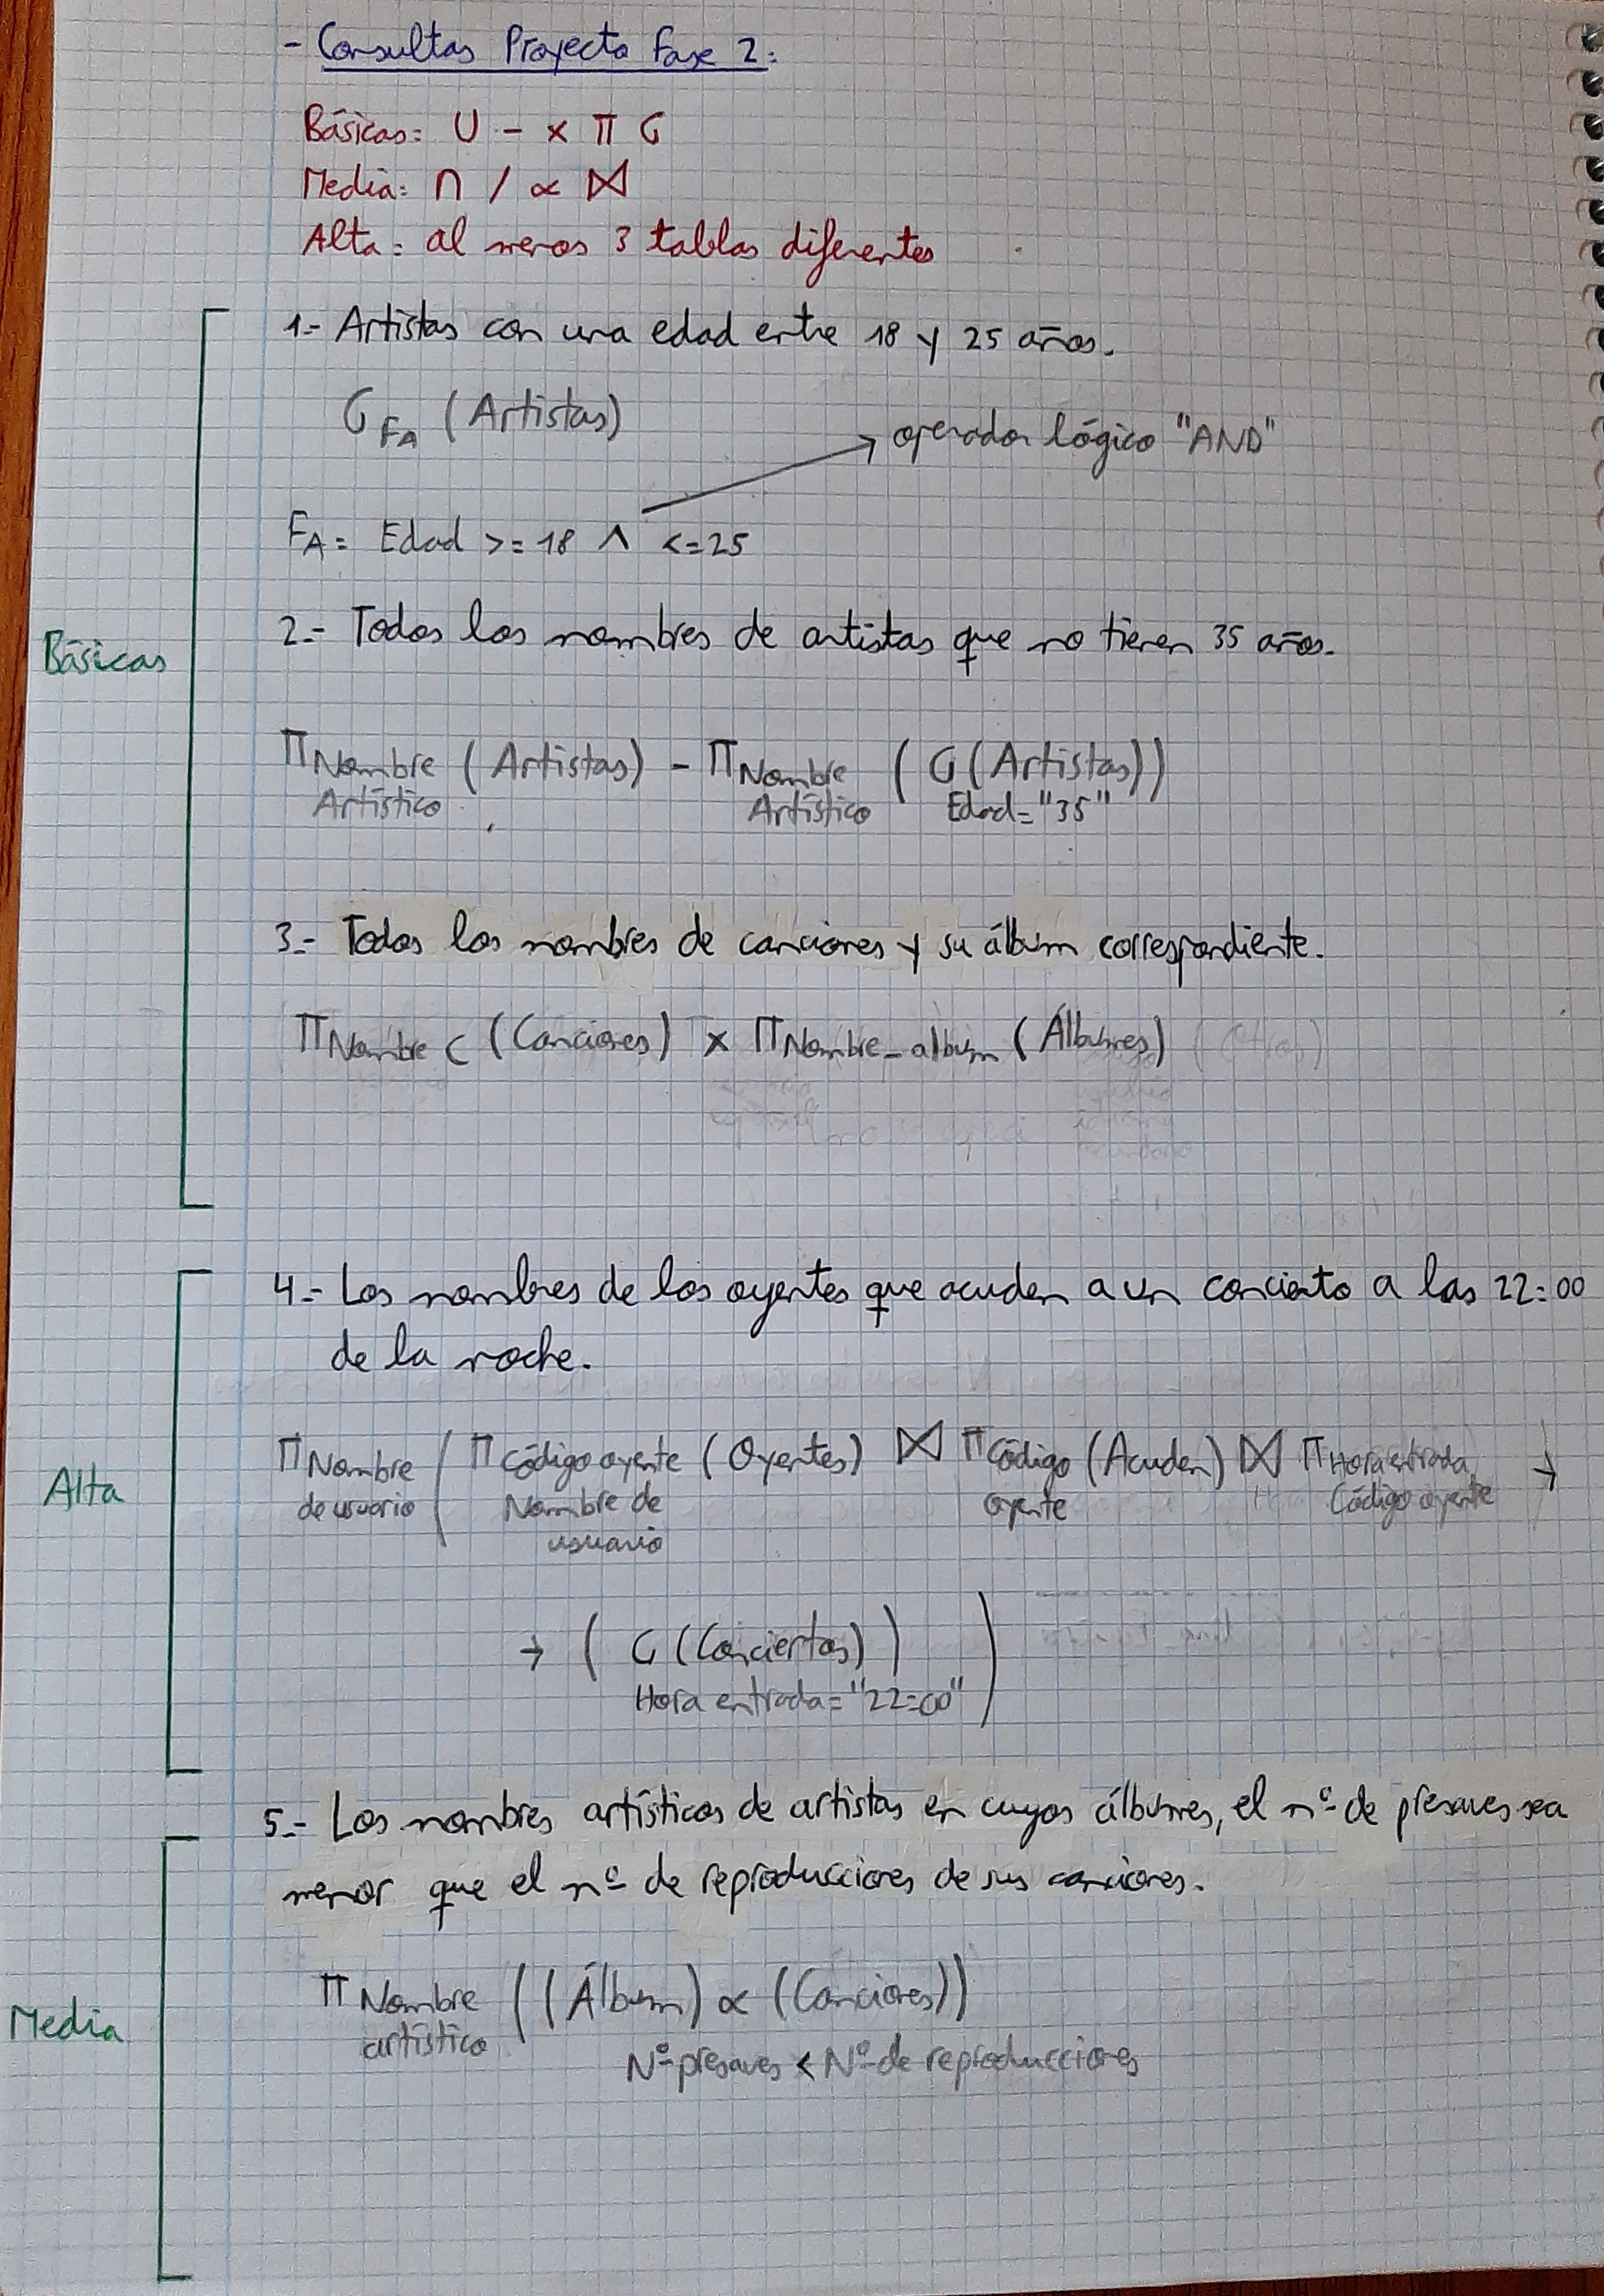 - Consultas Proyecto Fase 2:
Básicas: U - x Π σ
Media: ∩ / ∝ ⋈
Alta: al menos 3 tablas diferentes
1.- Artistas con una edad entre 18 y 25 años.
σ FA (Artistas)
operador lógico "AND"
FA = Edad >= 18 ∧ <= 25
Básicas
2.- Todos los nombres de artistas que no tienen 35 años.
Π Nombre Artístico (Artistas) - Π Nombre Artístico (σ (Artistas))
Edad = "35"
3.- Todos los nombres de canciones y su álbum correspondiente.
Π Nombre C (Canciones) x Π Nombre_album (Álbumes)
4.- Los nombres de los oyentes que acuden a un concierto a las 22:00
de la noche.
Alta
Π Nombre de usuario ( Π Código oyente Nombre de usuario (Oyentes) ⋈ Π Código oyente (Acuden) ⋈ Π Hora entrada, Código oyente →
→ ( σ (Conciertos) ) )
Hora entrada = "22:00"
5.- Los nombres artísticos de artistas en cuyos álbumes, el nº de presaves sea
menor que el nº de reproducciones de sus canciones.
Π Nombre artístico ((Álbum) ∝ (Canciones))
Media
Nº presaves < Nº de reproducciones